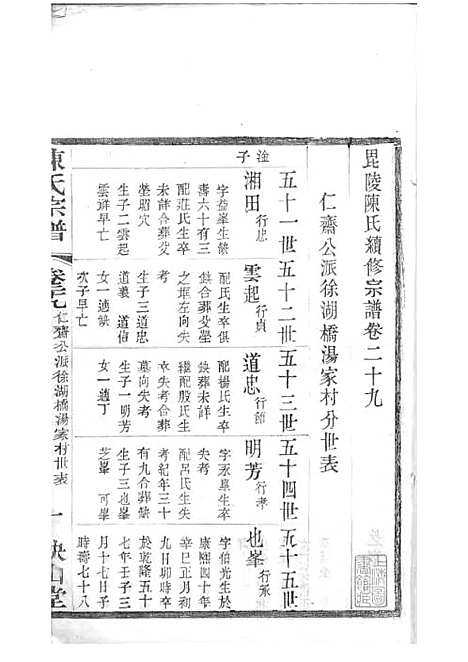 毘陵陳氏續修宗譜卷二十九
仁齋公派徐湖橋湯家村分世表
五十一世
五十二世
五十三世
五十四世
五十五世
淦子
湘田行忠
字益峯生缺
壽六十有三
配莊氏生卒
未詳合葬父
塋昭穴
生子二雲起
雲祥早亡
雲起行貞
配氏生卒俱
缺合葬父塋
之堐左向失
考
生子三道忠
道義 道伯
女一適缺
次子早亡
道忠行節
配楊氏生卒
缺葬未詳
繼配殷氏生
卒失考合葬
墓向失考
生子一明芳
女一適丁
明芳行孝
字承皐生卒
失考
配呂氏生失
考紀年三十
有九合葬缺
生子三也峯
芝峯 可峯
也峯行承
字伯光生於
康熙四十年
辛巳正月初
九日卯時卒
於乾隆五十
七年壬子七
月十七日子
時壽七十八
陳氏宗譜
卷元九
仁齋公派徐湖橋湯家村世表
一
映山堂